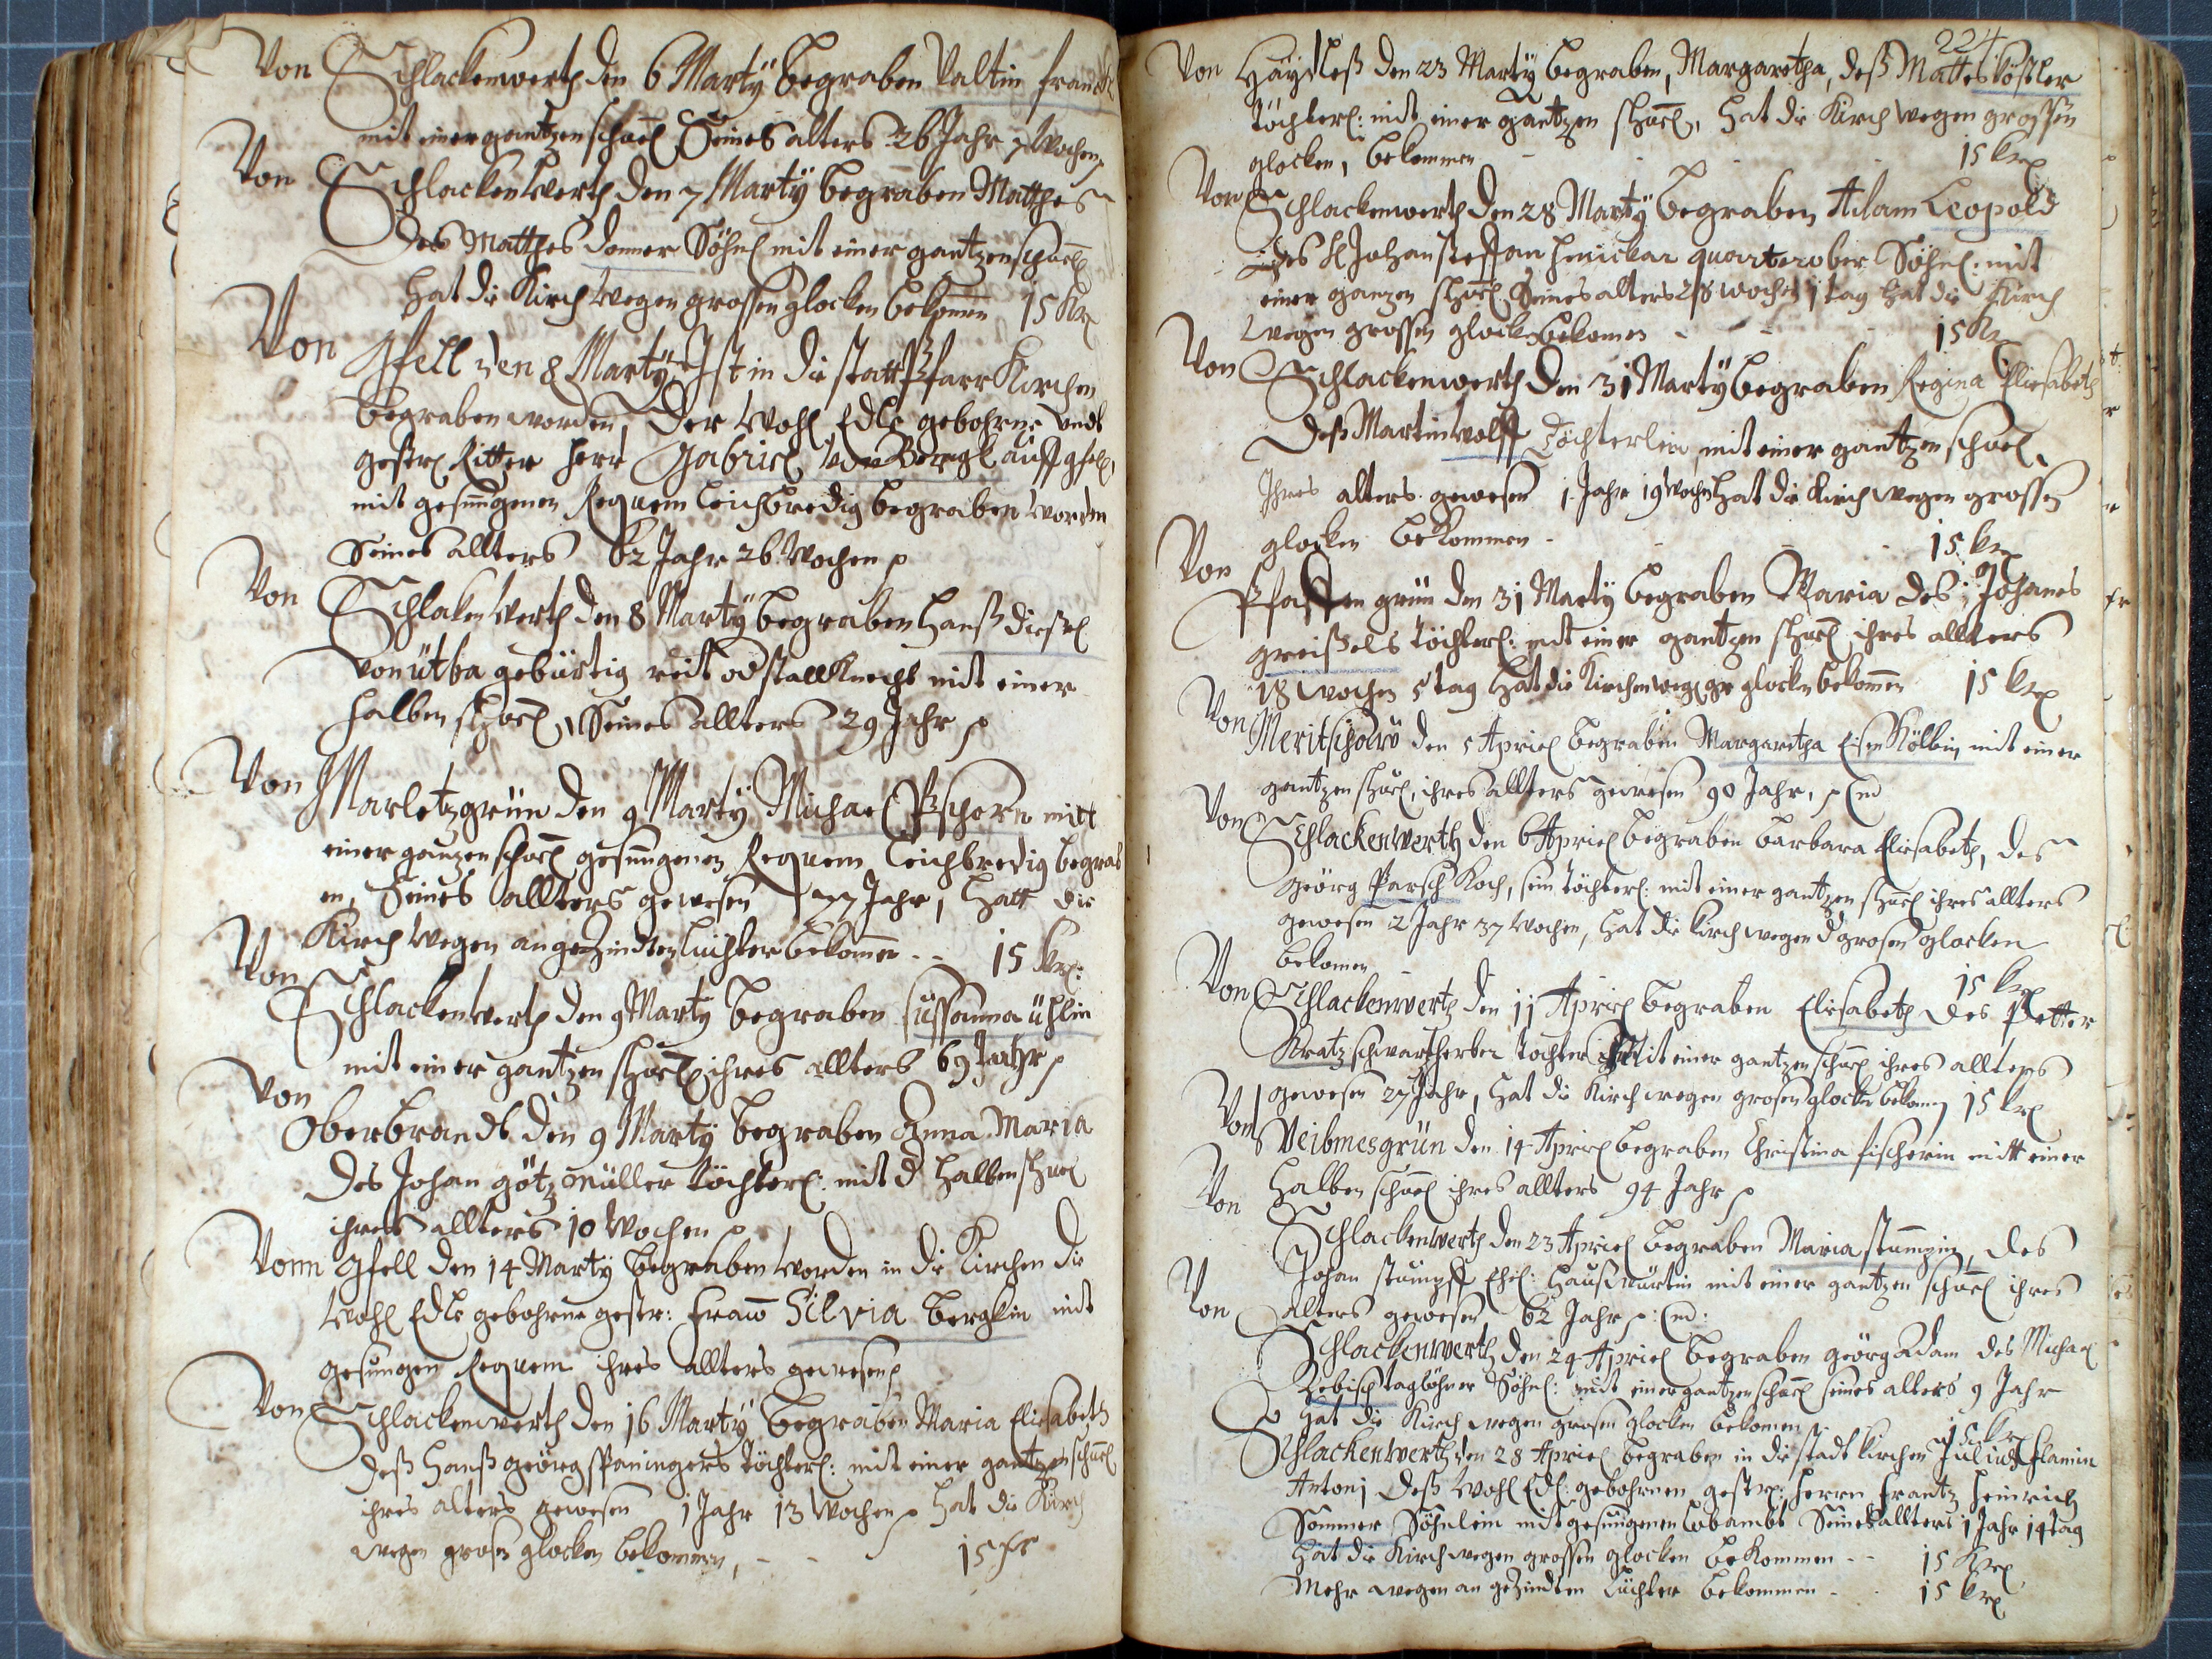 Von Schlackenwerth den 6 Martÿ begraben Valtin Franck
mit einer gantzen schuel Seines alters 26 Jahr 7 Wochen
Von Schlackenwerth den 7 Martÿ begraben Matthes
des Matthes Donner Söhnl mit einer gantzen schuel
hat die Kirch wegen grossen glocken bekomen 15 Kr
Von Gfell den 8 Martÿ Ist in die statt Pfarr Kirchen
begraben worden, der Wohl Edle gebohrne undt
gestr: Ritter Herr Gabriel von auff gfell,
mit gesungenen Requem Leichbredig begraben worden
Seines allters 62 Jahr 26 Wochen
Von Schlakenwerth den 8 Martÿ begraben Hanß
von ütba gebürtig stallKnecht mit einer
halben schuel, Seines allters 29 Jahr
Von Marletzgrün den 9 Martÿ Michael Pschorn mitt
einer ganzen schuel gesungenen Requem Leichbredig begrab
en, Seines allters gewesen 77 Jahr, Hatt die
Kirch wegen angezindten lüchter bekomen - - 15 Kr:
Von Schlackenwerth den 9 Martÿ begraben Sussanna ühlin
mit einer gantzen schuel ihres allters 69 Jahr
Von Oberbrandt den 9 Martÿ begraben Anna Maria
des Johan götz müller töchterl: mit d halben schuel
ihres allters 10 Wochen
Vonn Gfell den 14 Martÿ begraben worden in die Kirchen die
Wohl Edle gebohrne gestr: Fraw Silvia Bergklin mit
gesungen Requem ihres allters gewesen
Von Schlackenwerth den 16 Martÿ begraben Maria Elisabeth
deß Hanß Geörg Spaningers töchterl: mit einer gantzen schuel
ihres alters gewesen 1 Jahr 13 Wochen hat die Kirch
wegen grosen glocken bekommen, - - 15 Kr
224
Von Haÿdleß den 23 Martÿ begraben, Margaretha, deß Mattes Kößler
töchterl: mit einer gantzen schuel, hat die Kirch wegen grossen
glocken, bekommen - 15 Kr
Von Schlackenwerth den 28 Martÿ begraben Adam Leopold
des H Johan Steffan quarterober Söhnl: mit
einer ganzen schuel Seines alters 28 wochen 1 tag hat die Kirch
wegen grossen glocken bekomen - - 15 Kr
Von Schlackenwerth den 31 Martÿ begraben Regina Eliesabeth
deß Martin Wolff Töchterlein, mit einer gantzen schuel,
Ihres alters gewesen 1 Jahr 19 Wochen hat die Kirch wegen grossen
glocken bekommen - 15 Kr
Von Pfaffengrün den 31 Martÿ begraben Maria des Johanes
Greißels töchterl: mit einer gantzen schuel ihres allters
18 wochen 5 tag Hat die Kirchen wegen gr glocken bekomen 15 Kr
Von Meritschaw den 5 Apriel begraben Margaretha Eisenkölbin mit einer
gantzen schuel, ihres allters gewesen 90 Jahr,
Von Schlackenwerth den 6 Apriel begraben Barbara Elisabeth, des
Geörg Parsch Koch, sein töchterl: mit einer gantzen schuel ihres allters
gewesen 2 Jahr 37 Wochen, hat die Kirch wegen d grosen glocken
bekomen - 15 Kr
Von Schlackenwerth den 11 Apriel begraben Elisabeth des Petter
Kratz schwartferber tochter mit einer gantzen schuel ihres allters
gewesen 27 Jahr, hat die Kirch wegen grosen glocken bekomen 15 Kr
Von Veibmesgrün den 14 Apriel begraben Christina Fischerin mitt einer
halben schuel ihres allters 94 Jahr
Von Schlackenwerth den 23 Apriel begraben Maria Stumpin, des
Johan Stumpff Ehel: Haußwürtin mit einer gantzen schuel ihres
alters gewesen 62 Jahr
Von Schlackenwerth den 24 Apriel begraben Geörg Adam des Michael
Zebisch taglöhner Söhnl: mit einer gantzen schuel seines alters 9 Jahr
hat die Kirch wegen grosen glocken bekomen 15 Kr
Schlackenwerth den 28 Apriel begraben in die stadt kirchen Julius Flamin
Antonj deß Wohl Edl: gebohrnen gestr: Herrn Frantz Heinrich
Sommer Söhnlein mit gesungenen Lobambt Seines allters 1 Jahr 14 tag
hat die Kirch wegen grossen glocken bekommen - - 15 Kr
Mehr wegen an gezindten Lüchter bekommen - 15 Kr